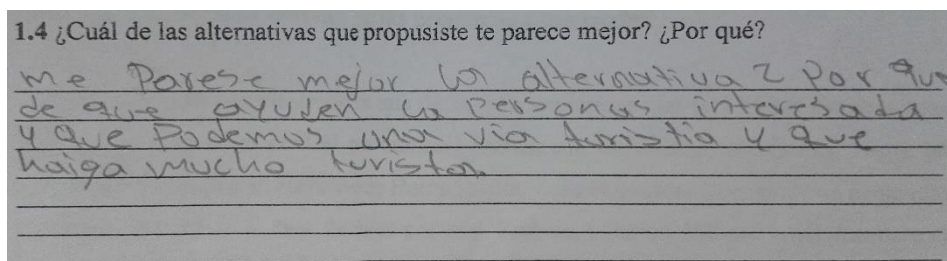 1.4 ¿Cuál de las alternativas que propusiste te parece mejor? ¿Por qué?
me Parese mejor la alternativa 2 Por que
de que ayuden la personas interesada
y que Podemos una via turistia y que
haiga mucho turista